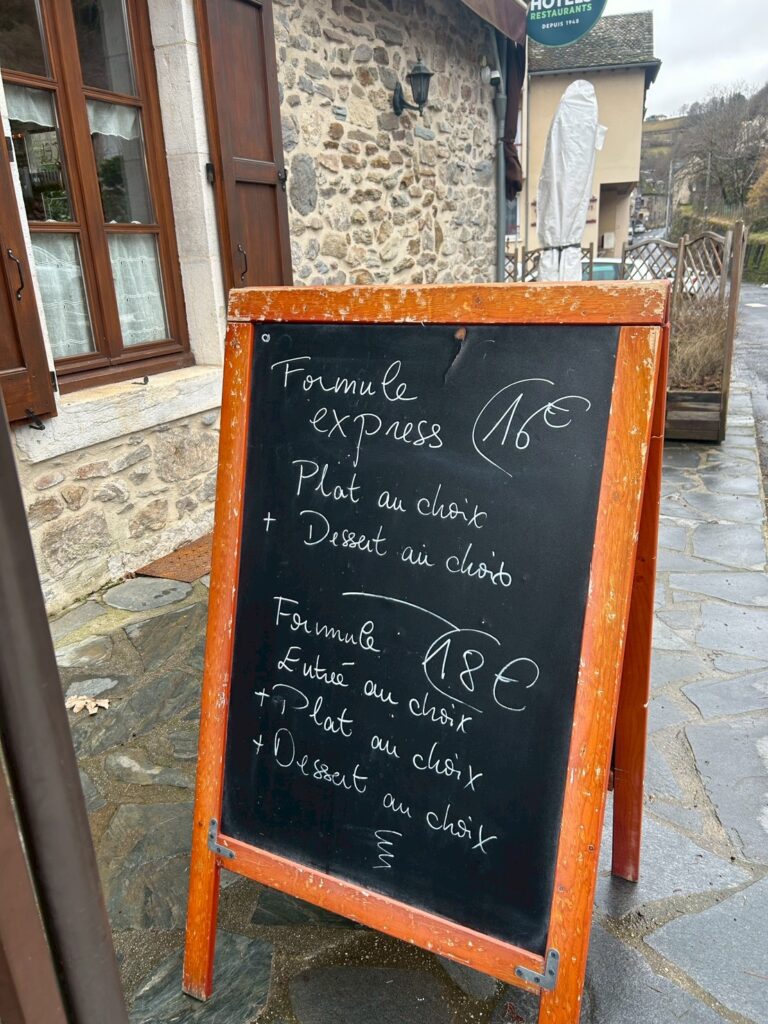 HOTELS
RESTAURANTS
DEPUIS 1948
Formule
express 16€
Plat au choix
+ Dessert au choix
Formule 18€
Entrée au choix
+ Plat au choix
+ Dessert au choix